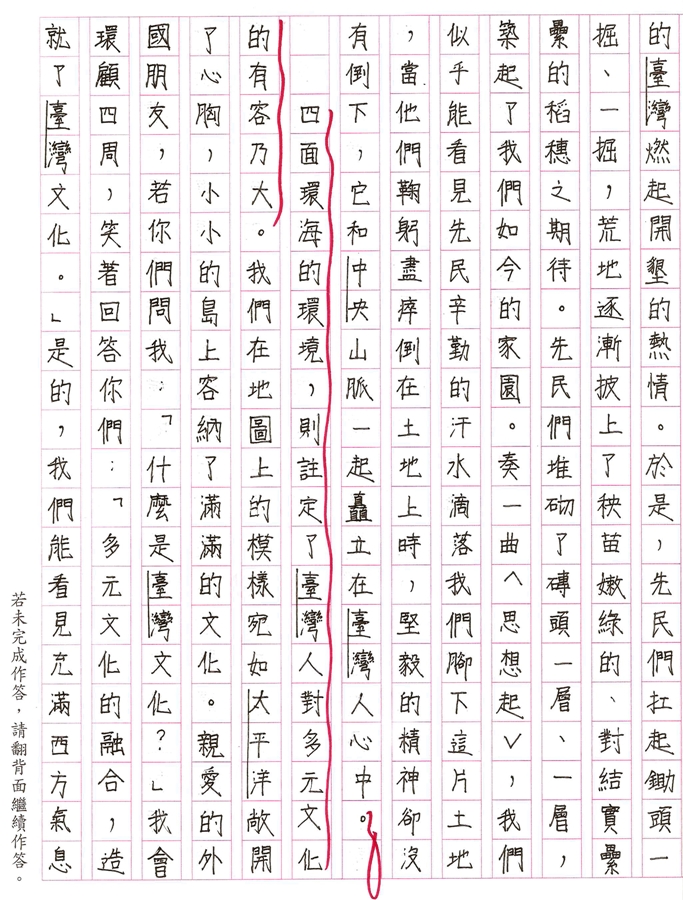 的臺灣燃起開墾的熱情。於是，先民們扛起鋤頭一
掘、一掘，荒地逐漸披上了秧苗嫩綠的、對結實纍
纍的稻穗之期待。先民們堆砌了磚頭一層、一層，
築起了我們如今的家園。奏一曲〈思想起〉，我們
似乎能看見先民辛勤的汗水滴落我們腳下這片土地
，當他們鞠躬盡瘁倒在土地上時，堅毅的精神卻沒
有倒下，它和中央山脈一起矗立在臺灣人心中。
四面環海的環境，則註定了臺灣人對多元文化
的有容乃大。我們在地圖上的模樣宛如太平洋敞開
了心胸，小小的島上容納了滿滿的文化。親愛的外
國朋友，若你們問我：「什麼是臺灣文化？」我會
環顧四周，笑著回答你們：「多元文化的融合，造
就了臺灣文化。」是的，我們能看見充滿西方氣息
若未完成作答，請翻背面繼續作答。